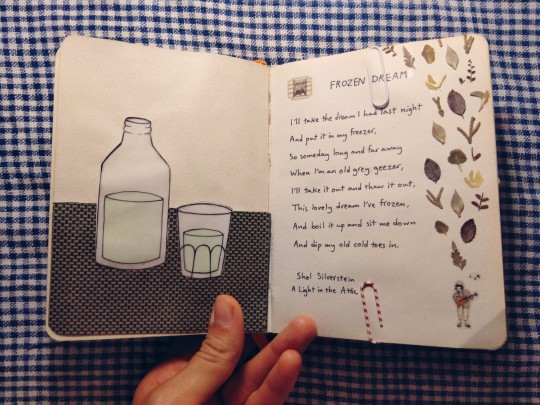 FROZEN DREAM
I'll take the dream I had last night
And put it in my freezer,
So someday long and far away
When I'm an old grey geezer,
I'll take it out and thaw it out,
This lovely dream I've frozen,
And boil it up and sit me down
And dip my old cold toes in.
Shel Silverstein
A Light in the Attic